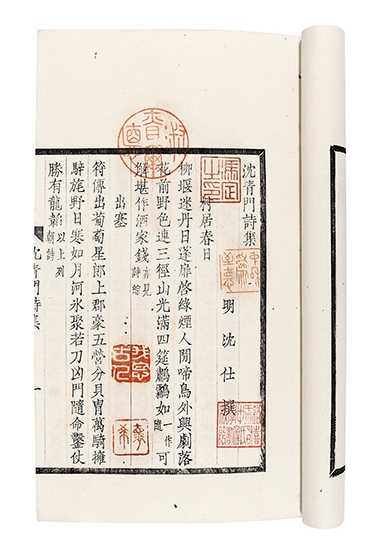 沈青門詩集
明 沈仕 撰
村居春日
柳堰迷丹日蓬扉啓綠煙人閒啼鳥外興劇落
花前野色連三徑山光滿四筵鸕鷀如一作隨可
解堪作酒家錢亦見詩綜
出塞
符傳出葡萄星郎上郡豪五營分貝冑萬騎擁
旄野日寒如月河氷聚若刀凶門隨命鑿仗
勝有龍韜以上列朝詩
沈青門詩集 一
我思古人